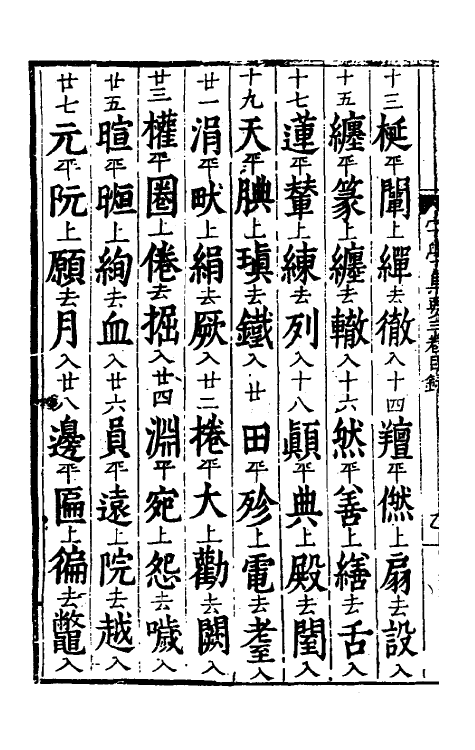 十三梴平闡上繟去徹入十四羶平㒄上扇去設入
十五纏平篆上纏去轍入十六然平善上繕去舌入
十七蓮平輦上練去列入十八顚平典上殿去闃入
十九天平腆上瑱去鐵入廿田平殄上電去耊入
廿一涓平畎上絹去厥入廿二捲平大上勸去闕入
廿三權平圈上倦去掘入廿四淵平宛上怨去噦入
廿五暄平暅上絢去血入廿六員平遠上院去越入
廿七元平阮上願去月入廿八邊平匾上徧去鼈入